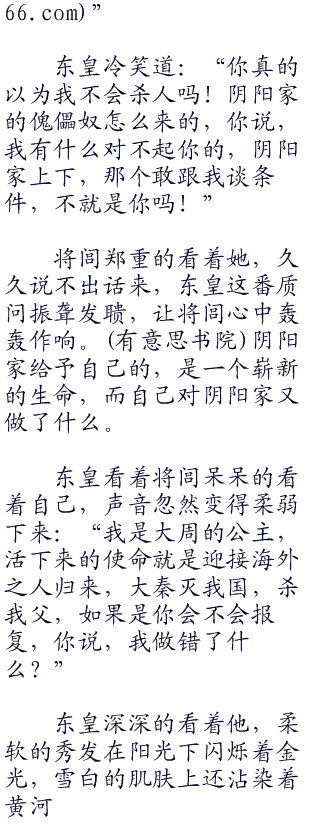 66.com)”
东皇冷笑道：“你真的
以为我不会杀人吗！阴阳家
的傀儡奴怎么来的，你说，
我有什么对不起你的，阴阳
家上下，那个敢跟我谈条
件，不就是你吗！”
将闾郑重的看着她，久
久说不出话来，东皇这番质
问振聋发聩，让将闾心中轰
轰作响。(有意思书院)阴阳
家给予自己的，是一个崭新
的生命，而自己对阴阳家又
做了什么。
东皇看着将闾呆呆的看
着自己，声音忽然变得柔弱
下来：“我是大周的公主，
活下来的使命就是迎接海外
之人归来，大秦灭我国，杀
我父，如果是你会不会报
复，你说，我做错了什
么？”
东皇深深的看着他，柔
软的秀发在阳光下闪烁着金
光，雪白的肌肤上还沾染着
黄河